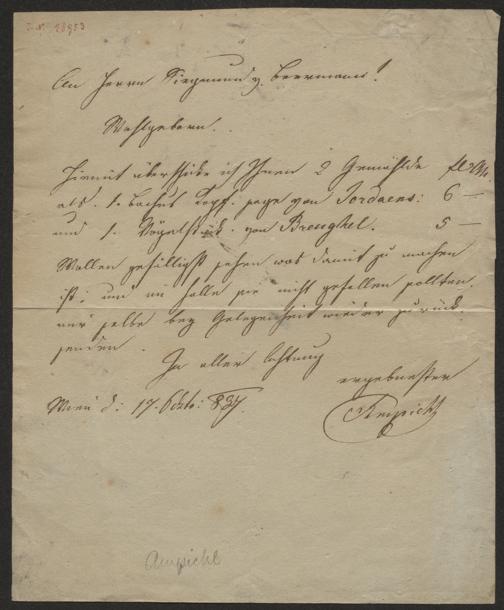 I.N. 28953
An Herrn Siegmund v. Beermann!
Wohlgeborn.
Hiemit überschicke ich Ihnen 2 Gemählde
als. 1. Bachus Kopf. von Jordaens: 6 —
und 1. Vögelstück. von Breughel. 5 —
Wollen gefälligst sehen was damit zu machen
ist; und im Falle sie nicht gefallen sollten.
mir selbe bey Gelegenheit wieder zurück
senden.
In aller Achtung
ergebenster
Wien d: 17. Octo: 837.